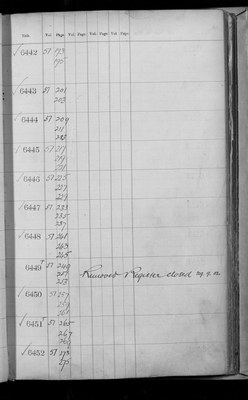 Title. Vol. Page. Vol. Page. Vol. Page. Vol. Page.
6442 57 173
175
6443 57 201
203
6444 57 209
211
6445 57 217
219
6446 57 225
227
229
6447 57 233
235
237
6448 57 241
243
245
6449 57 249
251
253
Removed Register closed
6450 57 257
6451 57 265
267
269
6452 57 273
275